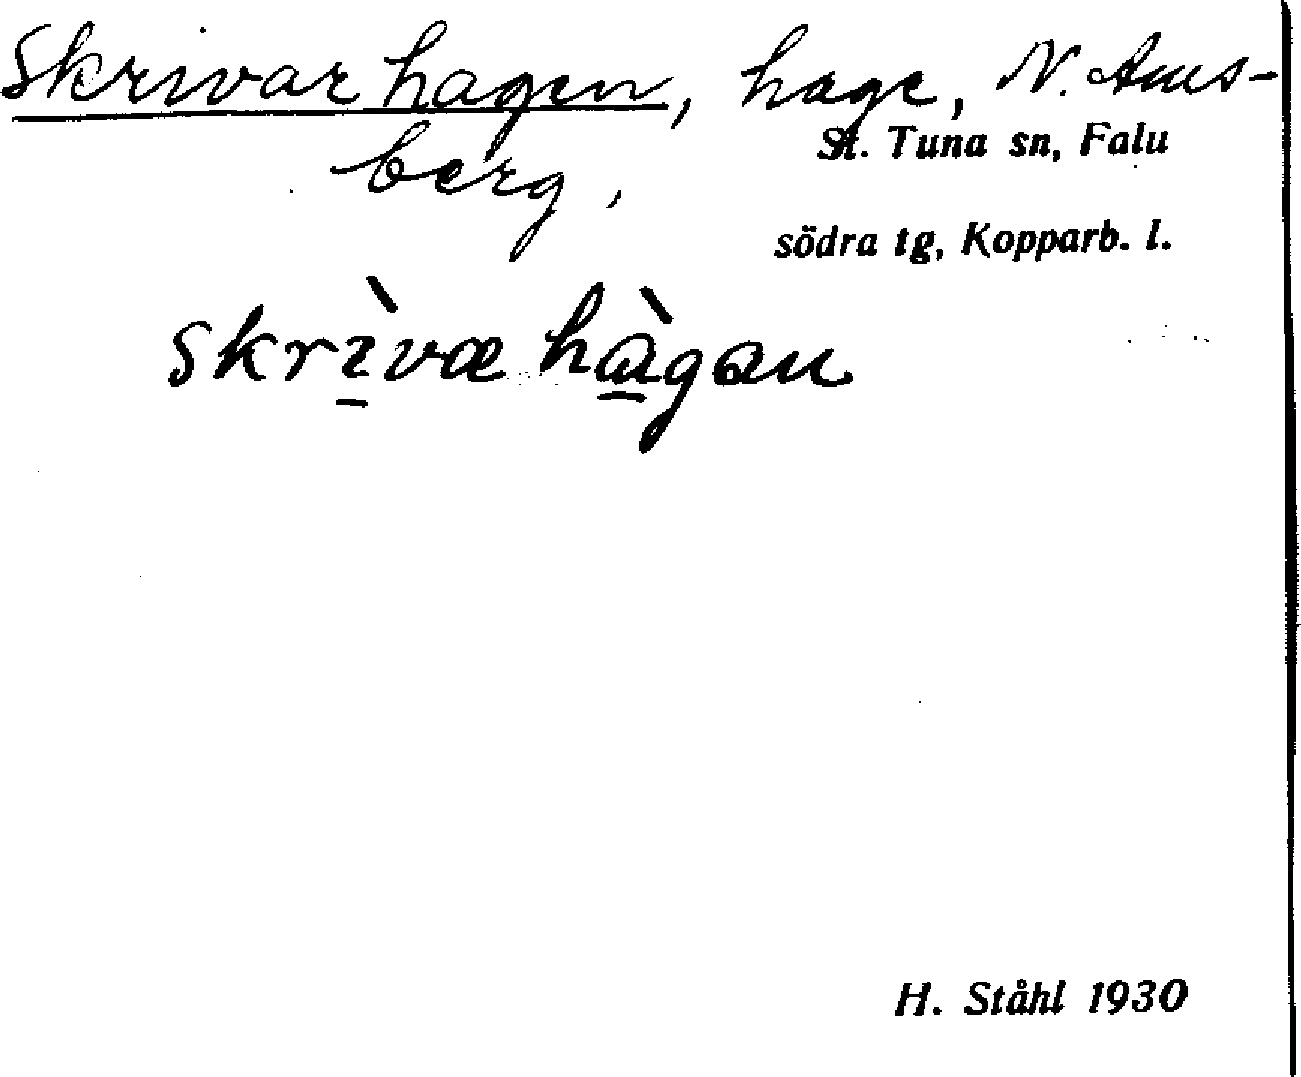 Skrivarhagen, hage, N. Ams-
berg,
St. Tuna sn, Falu
södra tg, Kopparb. l.
skrìvæ hàgan
H. Ståhl 1930